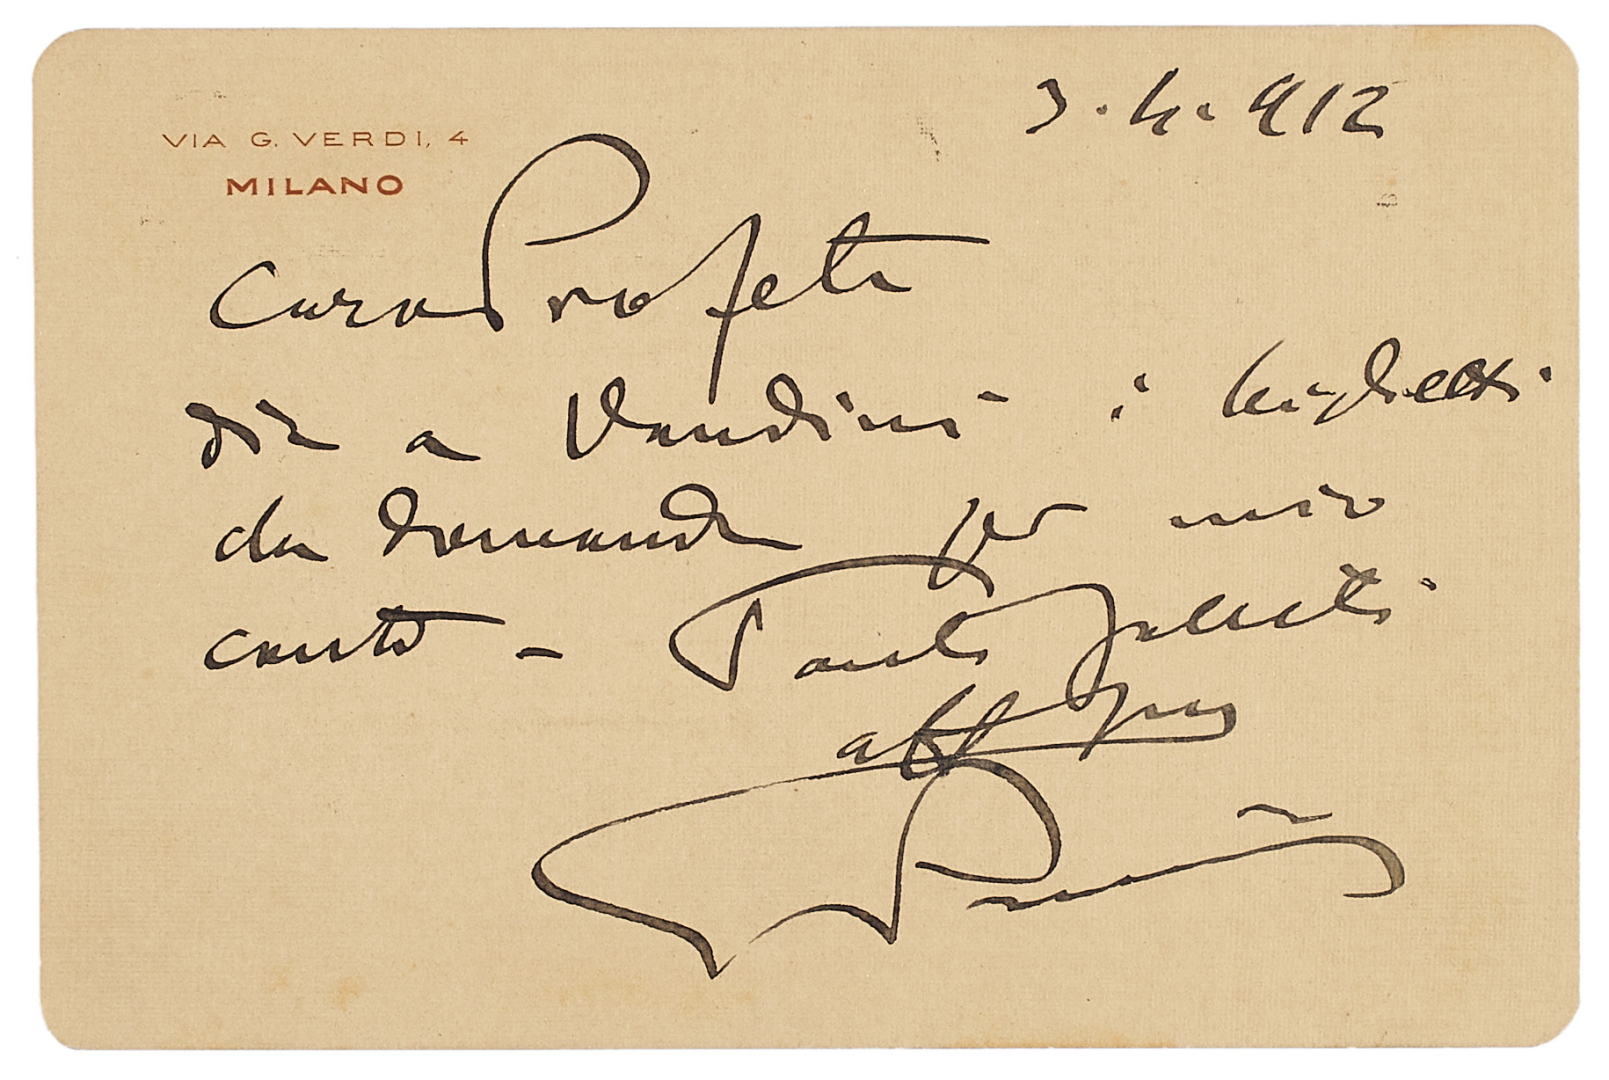 VIA G. VERDI, 4
MILANO
3.4.912
Caro Profeta
dia a Vandini i biglietti
da domanda per mio
conto - Tanti saluti
aff
Puccini